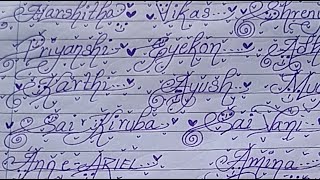 Harshitha Vikas Shreni
Priyanshi Gyekon Adh
Karthi Ayush Mu
Sai Kiruba Sai Vani
Anne ARIEL Amina